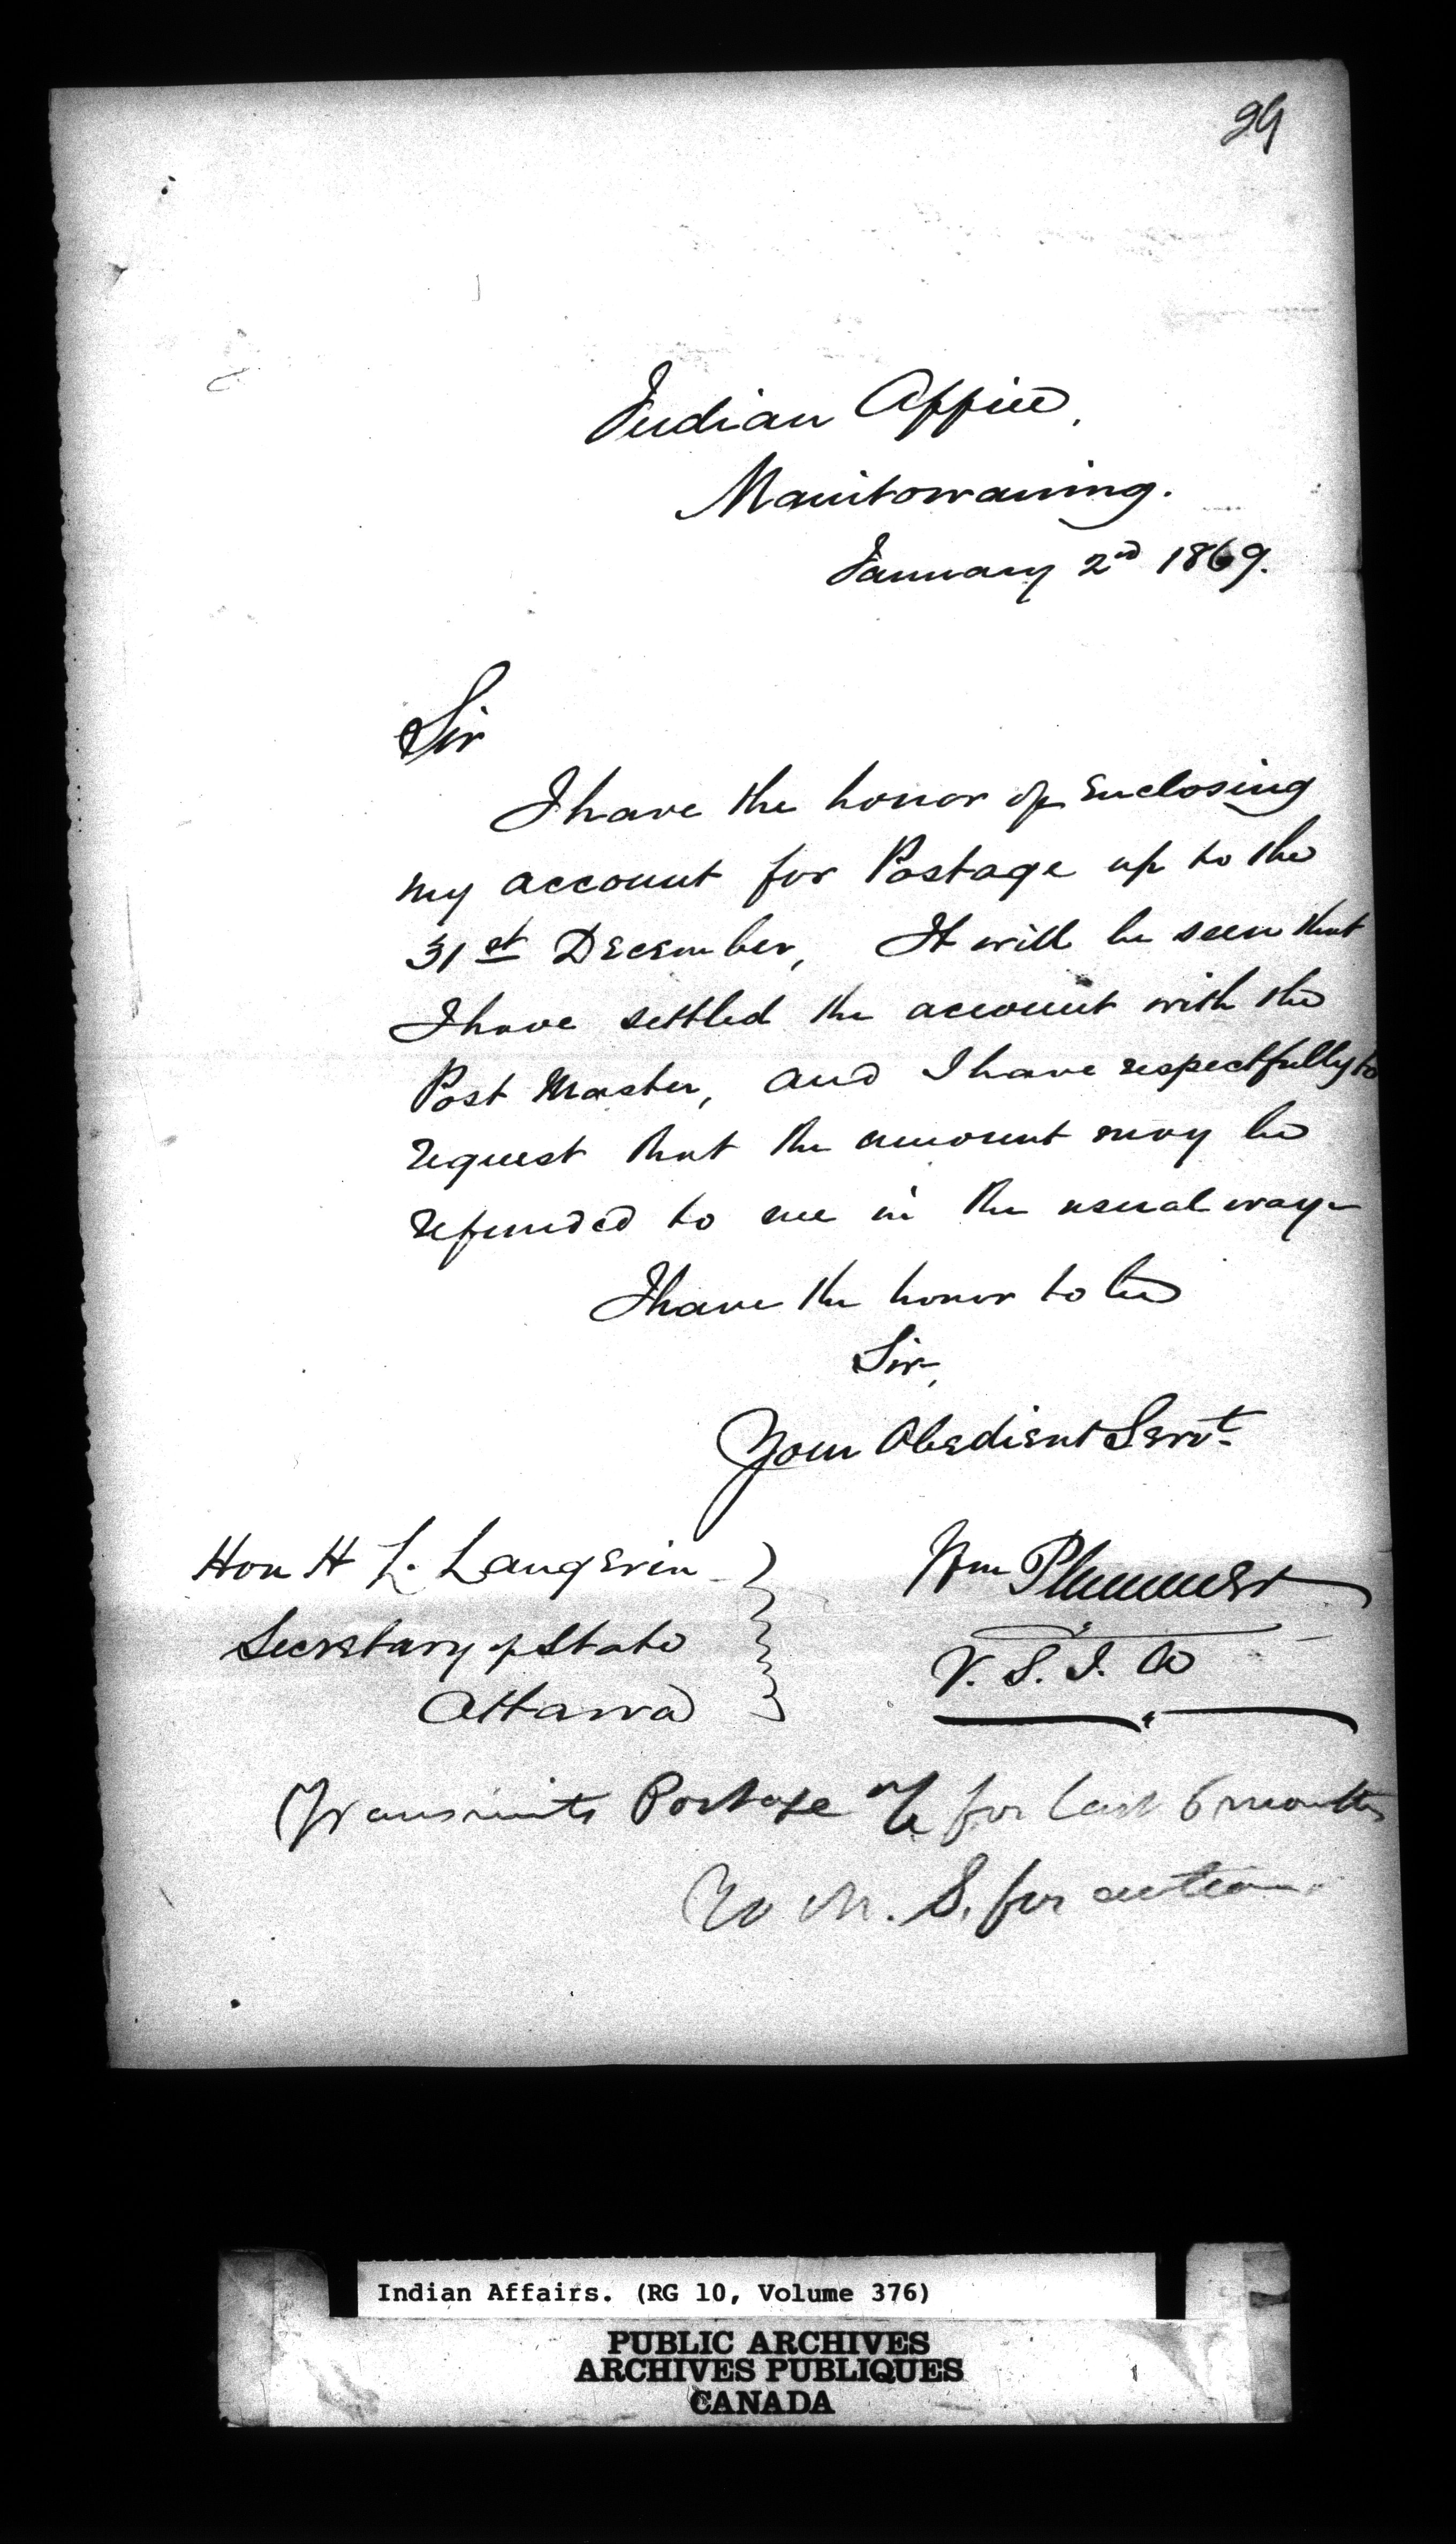 29
Indian Office,
Manitowaning.
January 2nd 1869.
Sir
I have the honor of enclosing
my account for Postage up to the
31st December, It will be seen that
I have settled the account with the
Post Master, and I have respectfully to
request that the amount may be
refunded to me in the usual way-
I have the honor to be
Sir,
Your Obedient Servt.
Hon H L. Langevin
Secretary of State
Ottawa
Wm Plummer
V. S. I. A
Transmits Postage a/c for last 6 months
To M. S. for action.
Indian Affairs. (RG 10, Volume 376)
PUBLIC ARCHIVES
ARCHIVES PUBLIQUES
CANADA